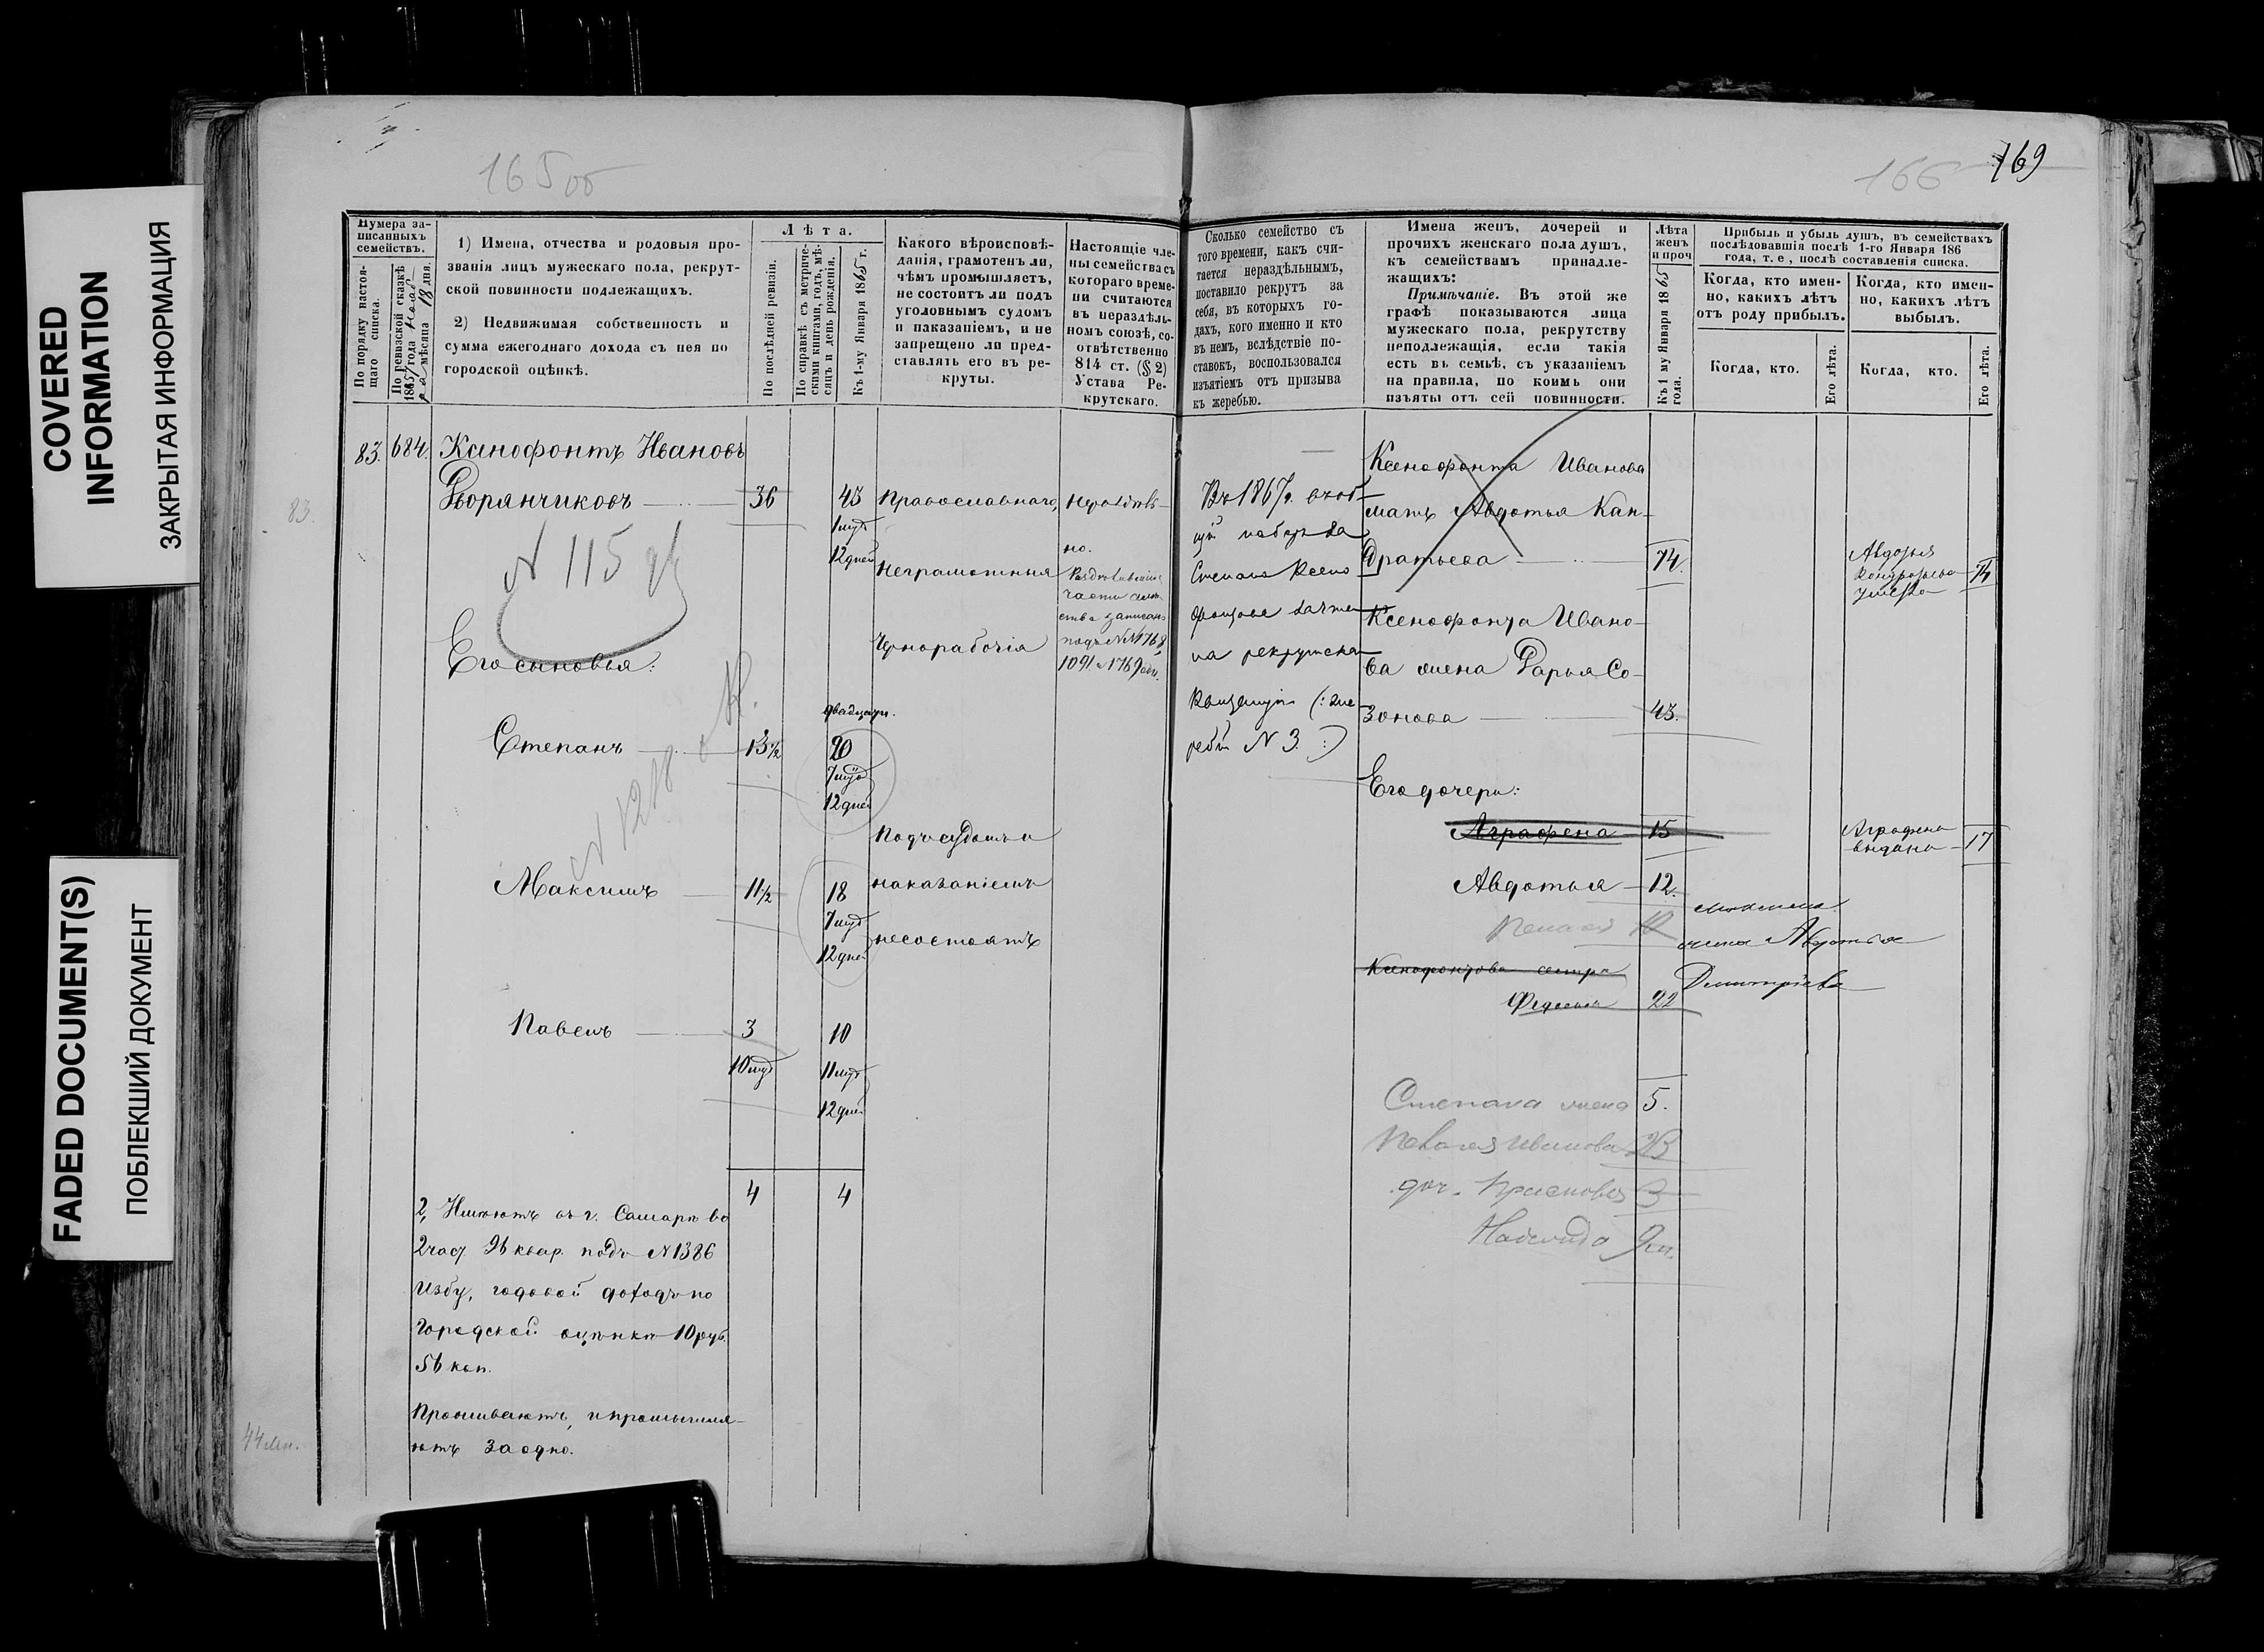 COVERED
INFORMATION
ЗАКРЫТАЯ ИНФОРМАЦИЯ
FADED DOCUMENT(S)
ПОБЛЕКШИЙ ДОКУМЕНТ
165об
166
169
Нумера за-
писанныхъ
семействъ.
По порядку настоя-
щаго списка.
По ревизской сказкѣ
1857 года
мѣсяца 18 дня.
1) Имена, отчества и родовыя про-
званія лицъ мужескаго пола, рекрут-
ской повинности подлежащихъ.
2) Недвижимая собственность и
сумма ежегоднаго дохода съ нея по
городской оцѣнкѣ.
Лѣта.
По послѣдней ревизіи.
По справкѣ съ метриче-
скими книгами, годъ, мѣ-
сяцъ и день рожденія.
Къ 1-му Января 1865 г.
Какого вѣроисповѣ-
данія, грамотенъ ли,
чѣмъ промышляетъ,
не состоитъ ли подъ
уголовнымъ судомъ
и наказаніемъ, и не
запрещено ли пред-
ставлять его въ ре-
круты.
Настоящіе чле-
ны семейства съ
котораго време-
ни считаются
въ нераздѣль-
номъ союзѣ, со-
отвѣтственно
814 ст. (§ 2)
Устава Ре-
крутскаго.
83.
684.
Ксинофонтъ Ивановъ
Дворянчиковъ 36 45
1 мцъ
12 дней
Православнаго,
неграмотныя
Чернорабочія
Подъ судомъ и
наказаніемъ
несостоятъ
Нераздѣль-
но.
83.
N 115
Его сыновья:
двадцать.
Степанъ 13½ 20
7 мцъ
12 дней
Максимъ 11½ 18
7 мцъ
12 дней
Павелъ 3 10
10 мцъ 11 мцъ
12 дней
4 4
2, Имѣютъ въ г. Самарѣ во
2 част. квар. подъ N 1386
Избу, годовой доходъ по
городской оцѣнкѣ 10 руб.
коп.
Проживаютъ и промышля-
ютъ заодно.
Сколько семейство съ
того времени, какъ счи-
тается нераздѣльнымъ,
поставило рекрутъ за
себя, въ которыхъ го-
дахъ, кого именно и кто
въ немъ, вслѣдствіе по-
ставокъ, воспользовался
изъятіемъ отъ призыва
къ жеребью.
Имена женъ, дочерей и
прочихъ женскаго пола душъ,
къ семействамъ принадле-
жащихъ:
Примѣчаніе. Въ этой же
графѣ показываются лица
мужескаго пола, рекрутству
неподлежащія, если такія
есть въ семьѣ, съ указаніемъ
на правила, по коимъ они
изъяты отъ сей повинности.
Лѣта
женъ
и проч
Къ 1 му Января 1865
года.
Прибыль и убыль душъ, въ семействахъ
послѣдовавшія послѣ 1-го Января 186
года, т. е, послѣ составленія списка.
Когда, кто имен-
но, какихъ лѣтъ
отъ роду прибылъ.
Когда, кто имен-
но, какихъ лѣтъ
выбылъ.
Когда, кто.
Его лѣта.
Когда, кто.
Его лѣта.
Въ 1867 г.
Степана Ксено
N 3. :)
Ксенофонта Иванова
мать Авдотья Кан-
дратьева 74.
Авдотья
Кондратьева
умерла 74
Ксенофонта Ивано-
ва жена Дарья Со-
зонова 43.
Его дочери:
Аграфена 15
Аграфена
выдана 17
Авдотья 12.
Максима
жена Авдотья
Дмитріева
Ксенофонтова сестра
Федосья 22
Степана жена 5.
Пелагея Иванова
доч. Прасковья 3
Надежда